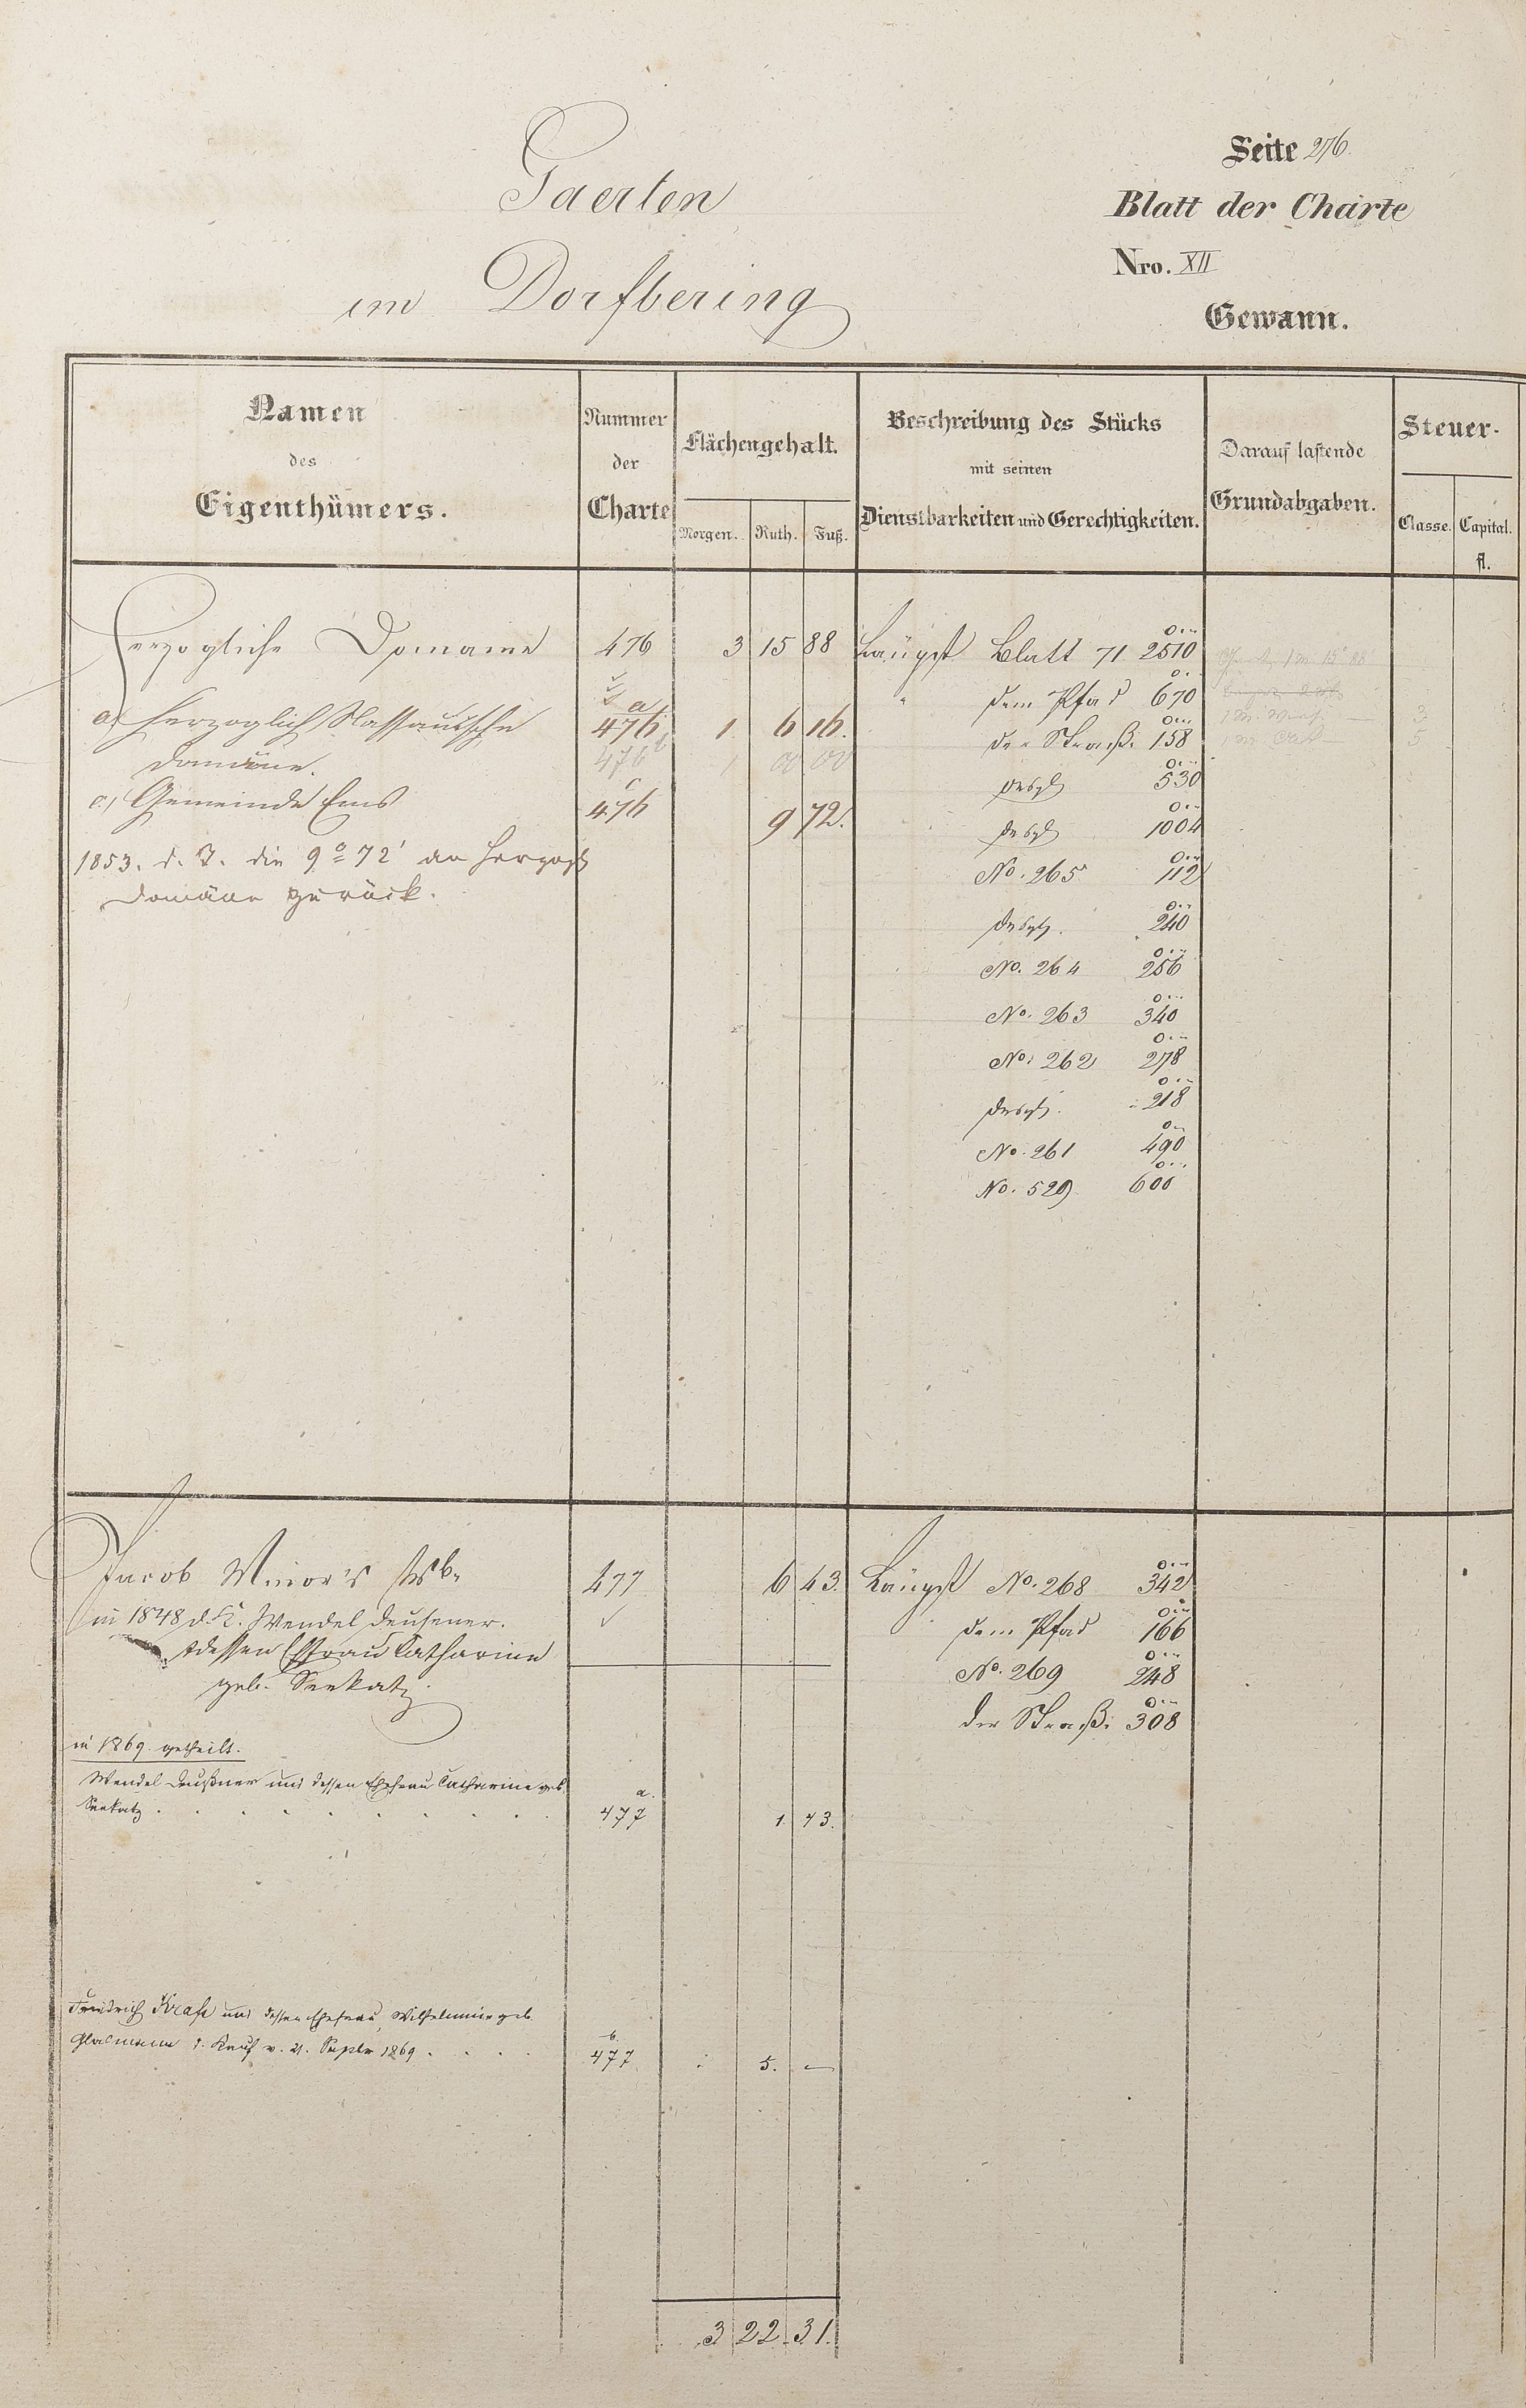 Seite 276.
Gaerten
Blatt der Charte
Nro. XII
im Dorfbering
Gewann.
Namen
des
Eigenthümers.
Nummer
der
Charte
Flächengehalt.
Morgen. Ruth. Fuß.
Beschreibung des Stücks
mit seinen
Dienstbarkeiten und Gerechtigkeiten.
Darauf lastende
Grundabgaben.
Steuer-
Classe. Capital.
fl.
Herzogliche Domaine 476 3 15 88 Längst Blatt 71 2510
dem Pfad 670
a) Herzoglich Nassauische 476 a 1 6 16. der Straße 158
Domäne. 476 b 1 00 00
desgl 530
c) Gemeinde Ems 476 c 9 72.
desgl 1004
1853. d. T. die 9° 72' an Herzogl
No. 265 112
Domäne zurück.
desgl. 240
No. 264 256
No. 263 340
No. 262 278
desgl. 218
No. 261 490
No. 529 600
Jacob Minor's 477 6 43. Längst No. 268 342
in 1848 d. K. Wendel Deusener. dem Pfad 166
&dessen Ehfrau Catharine
No. 269 248
geb. Seekatz.
der Straße 308
in 1869 getheilt.
Wendel Deußner und dessen Ehefrau Catharine geb.
Seekatz . . . . . . . . . 477 a. 1. 43.
Friedrich Kraft und dessen Ehefrau, Wilhelmine geb.
d. Kauf v. 21. Septbr 1869 . . . . 477 b. 5. —
3 22 31.